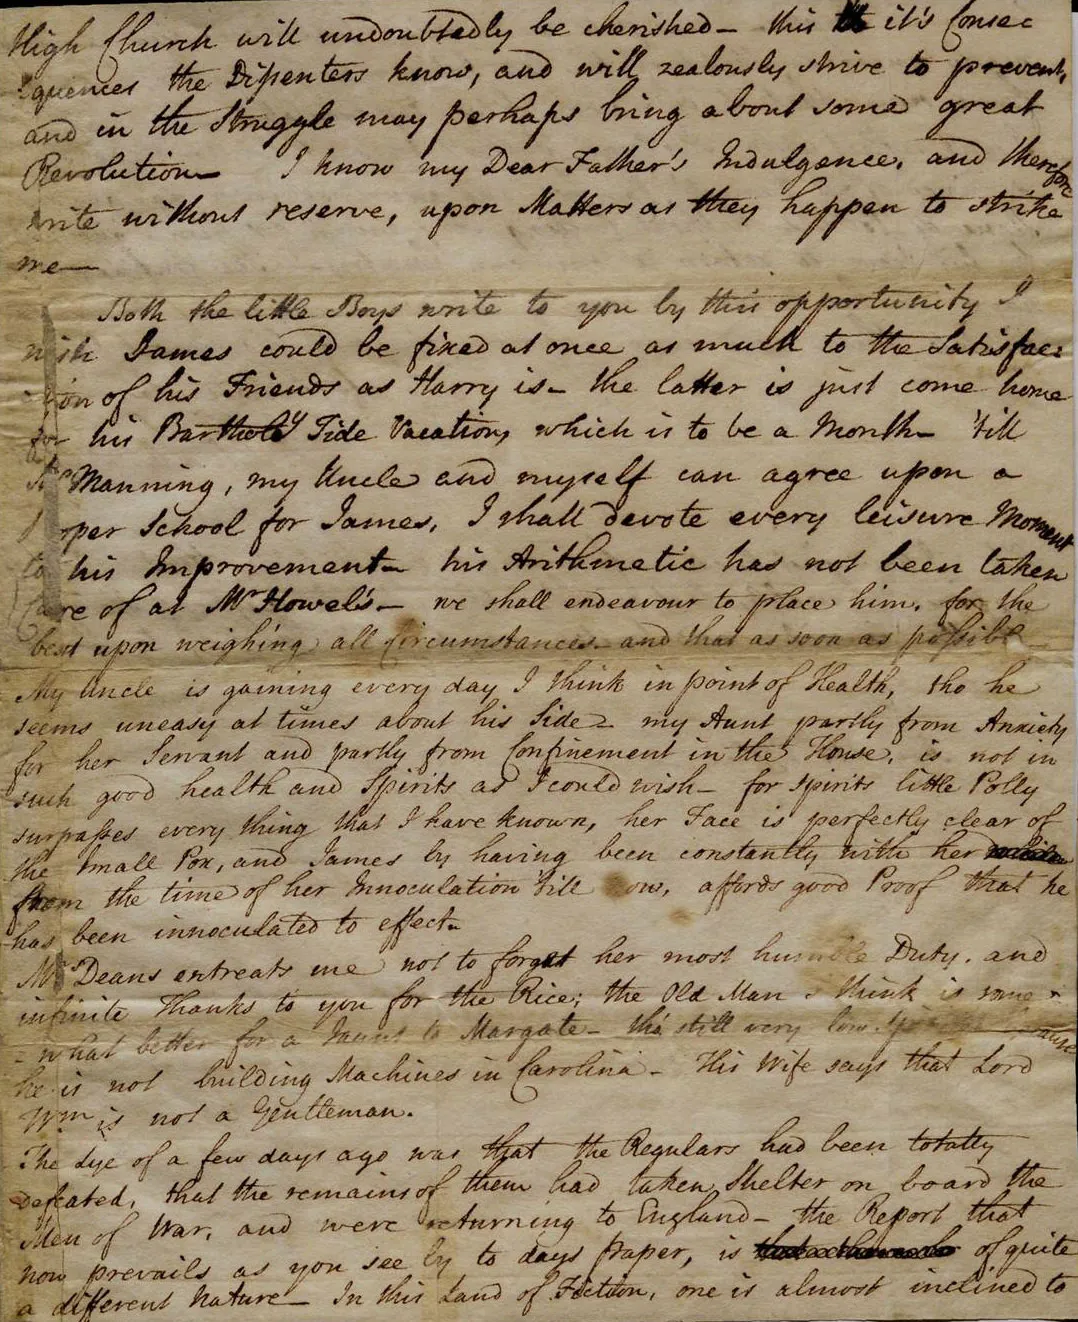 High Church will undoubtedly be cherished – this it's Consec
quences the Dissenters know, and will zealously strive to prevent,
and in the Struggle may perhaps bring about some great
Revolution – I know my Dear Father's Indulgence, and therefore
write without reserve, upon Matters as they happen to strike
me –
Both the little Boys write to you by this opportunity I
wish James could be fixed at once as much to the Satisfac:
tion of his Friends as Harry is – the latter is just come home
for his Barthol'y Tide Vacation, which is to be a Month – 'till
Mr Manning, my Uncle and myself can agree upon a
proper School for James, I shall devote every leisure Moment
to his Improvement – his Arithmetic has not been taken
Care of at Mr Howel's – we shall endeavour to place him, for the
best upon weighing all Circumstances – and that as soon as possible
My Uncle is gaining every day I think in point of Health, tho he
seems uneasy at times about his Side – my Aunt partly from Anxiety
for her Servant and partly from Confinement in the House, is not in
such good health and Spirits as I could wish – for Spirits little Polly
surpasses every thing that I have known, her Face is perfectly clear of
the Small Pox, and James by having been constantly with her
from the time of her Innoculation 'till now, affords good Proof that he
has been innoculated to effect –
Mrs Deans entreats me not to forget her most humble Duty, and
infinite Thanks to you for the Rice; the Old Man I think is some-
-what better for a Jaunt to Margate – tho' still very low because
he is not building Machines in Carolina – His Wife says that Lord
Wm is not a Gentleman.
The Lye of a few days ago was that the Regulars had been totally
defeated, that the remains of them had taken Shelter on board the
Men of War, and were returning to England – the Report that
now prevails as you see by to days Paper, is of quite
a different Nature – In this Land of Fiction, one is almost inclined to